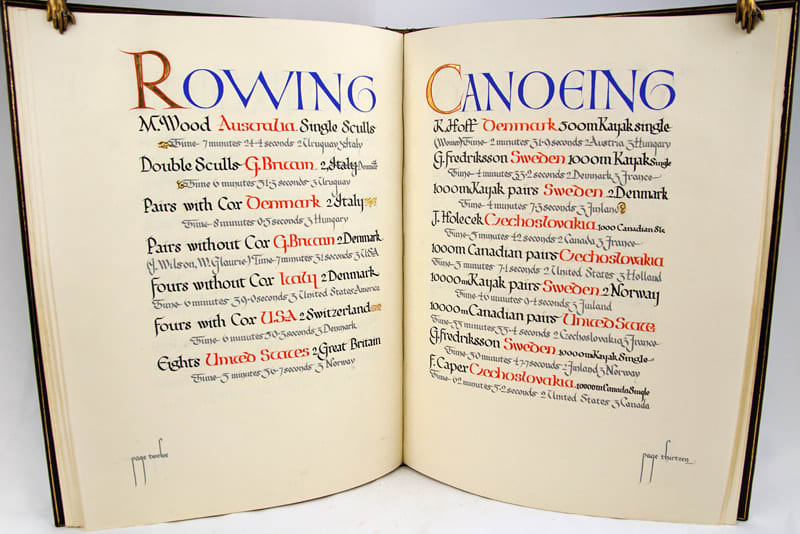 ROWING
M. Wood Australia Single Sculls
Time 7 minutes 24·4 seconds 2 Uruguay 3 Italy
Double Sculls G.Britain 2 Italy Denmark
Time 6 minutes 51·3 seconds 3 Uruguay
Pairs with Cox Denmark 2 Italy
Time 8 minutes 0·5 seconds 3 Hungary
Pairs without Cox G.Britain 2 Denmark
(J. Wilson, W. Glaurie) Time 7 minutes 21·1 seconds 3 USA
Fours without Cox Italy 2 Denmark
Time 6 minutes 39·0 seconds 3 United States America
Fours with Cox U.S.A 2 Switzerland
Time 6 minutes 50·3 seconds 3 Denmark
Eights United States 2 Great Britain
Time 5 minutes 56·7 seconds 3 Norway
page twelve
CANOEING
K. Hoff Denmark 500m Kayak single
(Women) Time 2 minutes 31·9 seconds 2 Austria 3 Hungary
G. fredriksson Sweden 1000m Kayak Single
Time 4 minutes 33·2 seconds 2 Denmark 3 France
1000m Kayak pairs Sweden 2 Denmark
Time 4 minutes 7·3 seconds 3 Finland
J. Holecek Czechoslovakia 1000 Canadian
Time 5 minutes 42 seconds 2 Canada 3 France
1000m Canadian pairs Czechoslovakia
Time 5 minutes 7·1 seconds 2 United States 3 Holland
10000m Kayak pairs Sweden 2 Norway
Time 46 minutes 9·4 seconds 3 Finland
10000m Canadian pairs United States
Time 55 minutes 55·4 seconds 2 Czechoslovakia 3 France
G. fredriksson Sweden 10000m Kayak Single
Time 50 minutes 47·7 seconds 2 Finland 3 Norway
F. Caper Czechoslovakia 10000m Canada Single
Time 62 minutes 5·2 seconds 2 United States 3 Canada
page thirteen